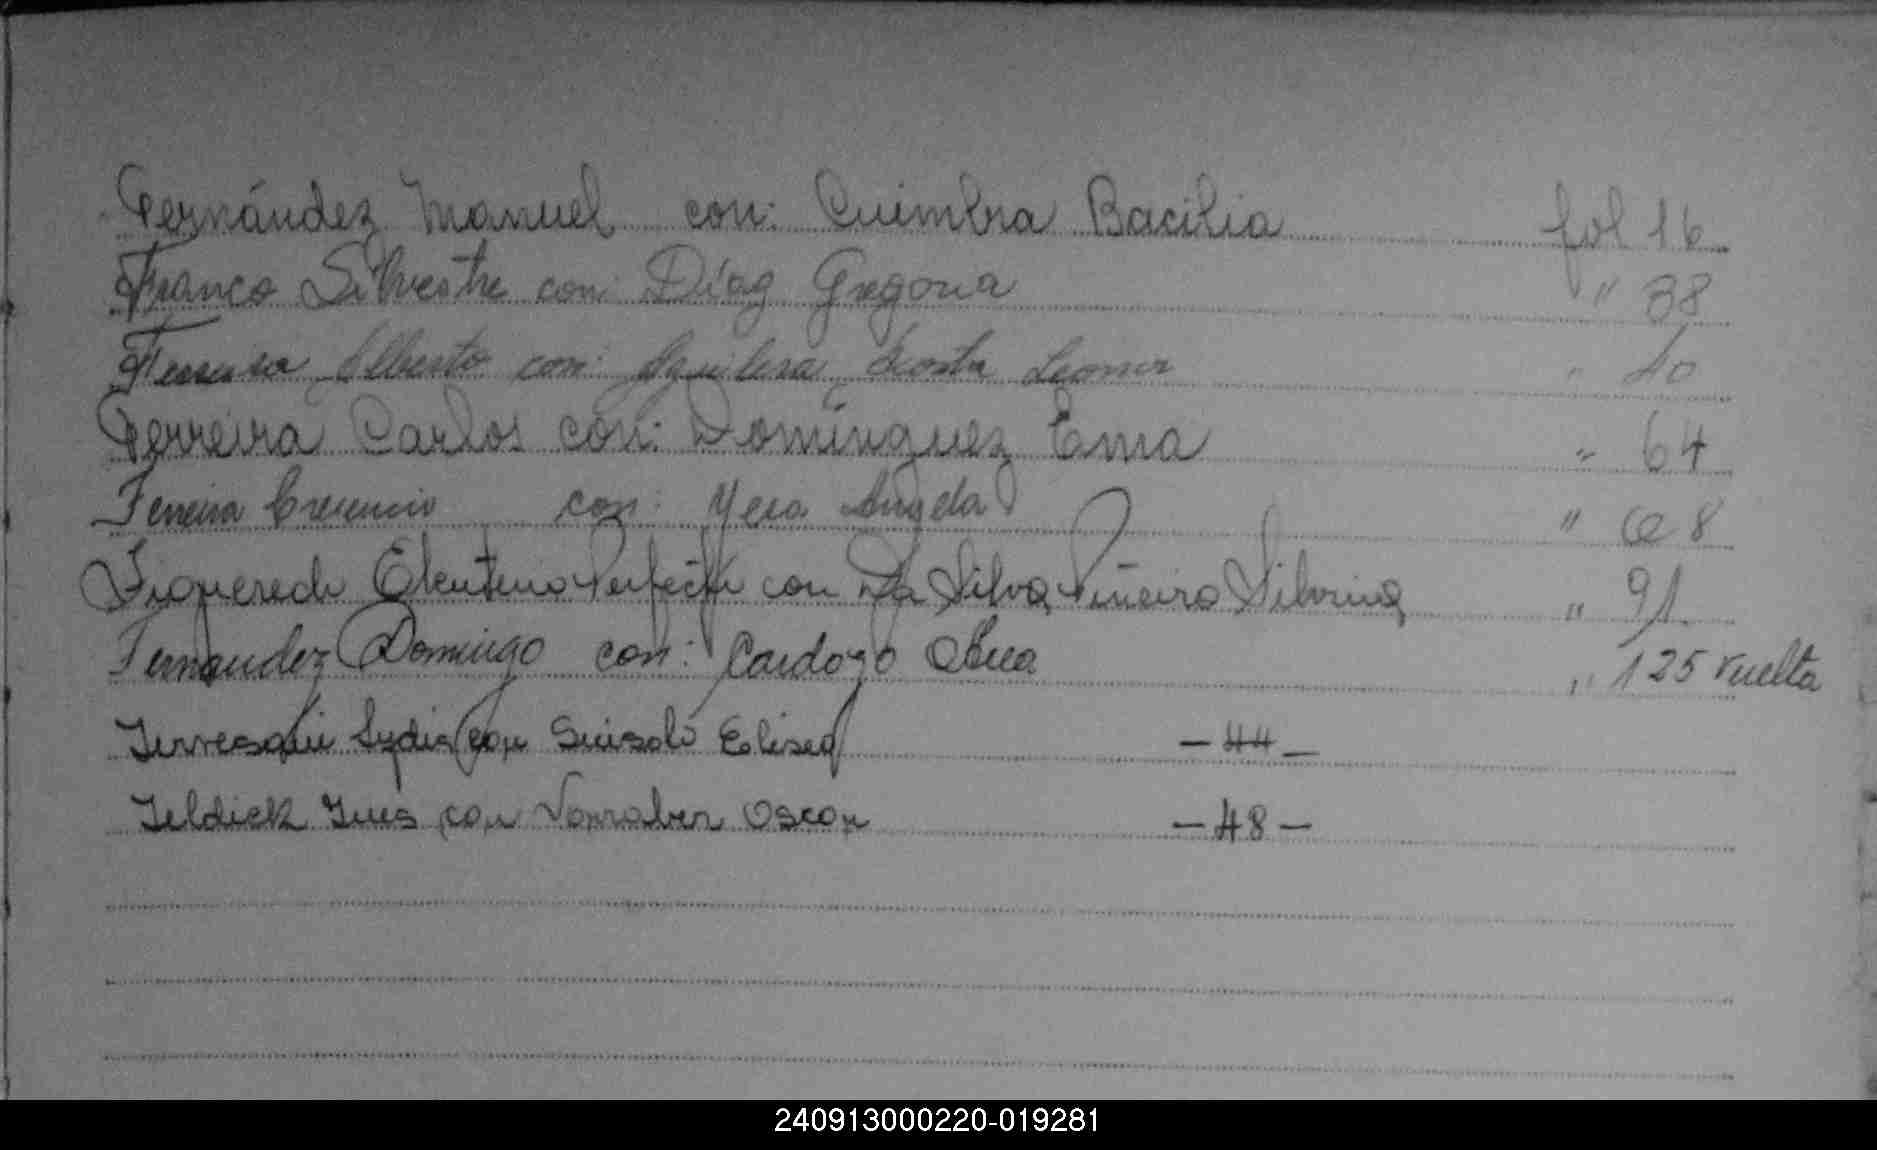 Fernández Manuel con: Cuimbra Bacilia fol 16
Franco Silvestre con: Díaz Gregoria " 38
Ferreira Alberto con: Aguilera Acosta Leonor " 40
Ferreira Carlos con: Domínguez Ema " 64
Ferreira Crecencio con: Vera Angela " 68
Figueredo Eleuterio Perfecto con Da Silva Piñeiro Silvina " 91
Fernandez Domingo con: Cardozo Alicia " 125 vuelta
Lydia con Eliseo - 44 -
Feldick Ines con Oscar - 48 -
240913000220-019281